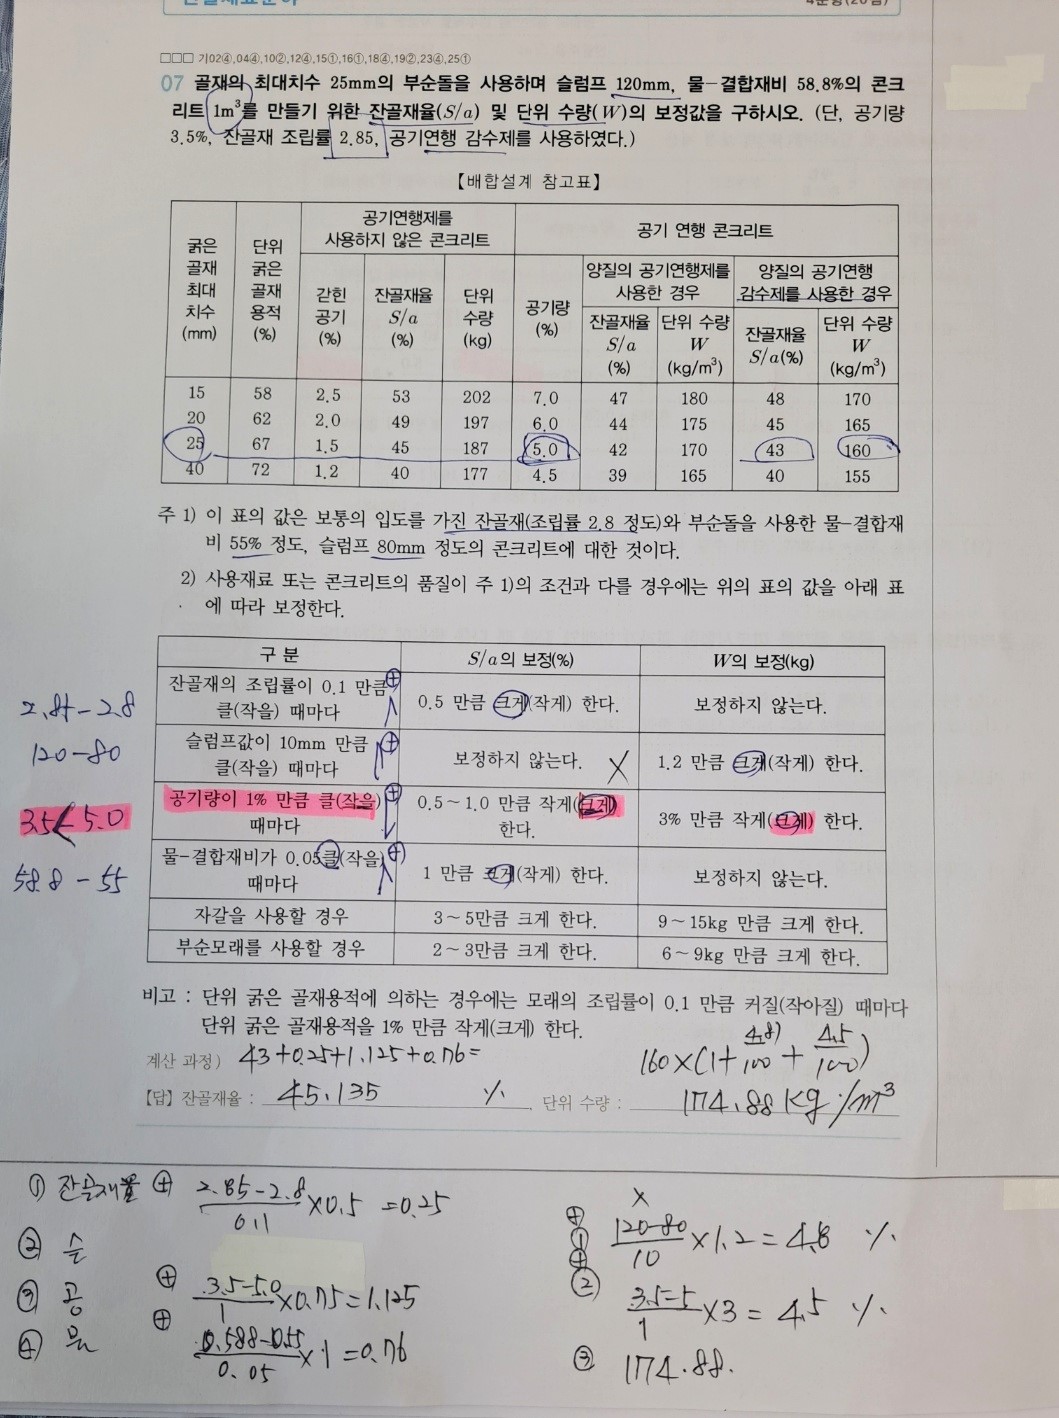 4문항(20점)
□□□ 기02④,04④,10②,12④,15①,16①,18④,19②,23④,25①
07 골재의 최대치수 25mm의 부순돌을 사용하며 슬럼프 120mm, 물-결합재비 58.8%의 콘크
리트 1m³를 만들기 위한 잔골재율(S/a) 및 단위 수량(W)의 보정값을 구하시오. (단, 공기량
3.5%, 잔골재 조립률 2.85, 공기연행 감수제를 사용하였다.)
【배합설계 참고표】
굵은 골재 최대 치수 (mm)
단위 굵은 골재 용적 (%)
공기연행제를 사용하지 않은 콘크리트
공기 연행 콘크리트
갇힌 공기 (%)
잔골재율 S/a (%)
단위 수량 (kg)
공기량 (%)
양질의 공기연행제를 사용한 경우
양질의 공기연행 감수제를 사용한 경우
잔골재율 S/a (%)
단위 수량 W (kg/m³)
잔골재율 S/a(%)
단위 수량 W (kg/m³)
15 58 2.5 53 202 7.0 47 180 48 170
20 62 2.0 49 197 6.0 44 175 45 165
25 67 1.5 45 187 5.0 42 170 43 160
40 72 1.2 40 177 4.5 39 165 40 155
주 1) 이 표의 값은 보통의 입도를 가진 잔골재(조립률 2.8 정도)와 부순돌을 사용한 물-결합재
비 55% 정도, 슬럼프 80mm 정도의 콘크리트에 대한 것이다.
2) 사용재료 또는 콘크리트의 품질이 주 1)의 조건과 다를 경우에는 위의 표의 값을 아래 표
에 따라 보정한다.
구 분 S/a의 보정(%) W의 보정(kg)
잔골재의 조립률이 0.1 만큼 ⊕
클(작을) 때마다
0.5 만큼 크게(작게) 한다.
보정하지 않는다.
2.85-2.8
슬럼프값이 10mm 만큼 ⊕
클(작을) 때마다
보정하지 않는다. X
1.2 만큼 크게(작게) 한다.
120-80
공기량이 1% 만큼 클(작을) ⊕
때마다
0.5~1.0 만큼 작게(크게)
한다.
3% 만큼 작게(크게) 한다.
3.5<5.0
물-결합재비가 0.05클(작을) ⊕
때마다
1 만큼 크게(작게) 한다.
보정하지 않는다.
58.8-55
자갈을 사용할 경우 3~5만큼 크게 한다. 9~15kg 만큼 크게 한다.
부순모래를 사용할 경우 2~3만큼 크게 한다. 6~9kg 만큼 크게 한다.
비고 : 단위 굵은 골재용적에 의하는 경우에는 모래의 조립률이 0.1 만큼 커질(작아질) 때마다
단위 굵은 골재용적을 1% 만큼 작게(크게) 한다.
계산 과정) 43+0.25+1.125+0.76= 160×(1+4.8/100+4.5/100)
【답】 잔골재율 : 45.135 % 단위 수량 : 174.88 kg/m³
① 잔골재율 ⊕ 2.85-2.8/0.1×0.5=0.25
② 슬
③ 공 ⊕ 3.5-5.0/1×0.75=1.125
④ 물 ⊕ 0.588-0.55/0.05×1=0.76
X
⊕ ① 120-80/10×1.2=4.8 %
⊕ ② 3.5-5/1×3=4.5 %
③ 174.88.